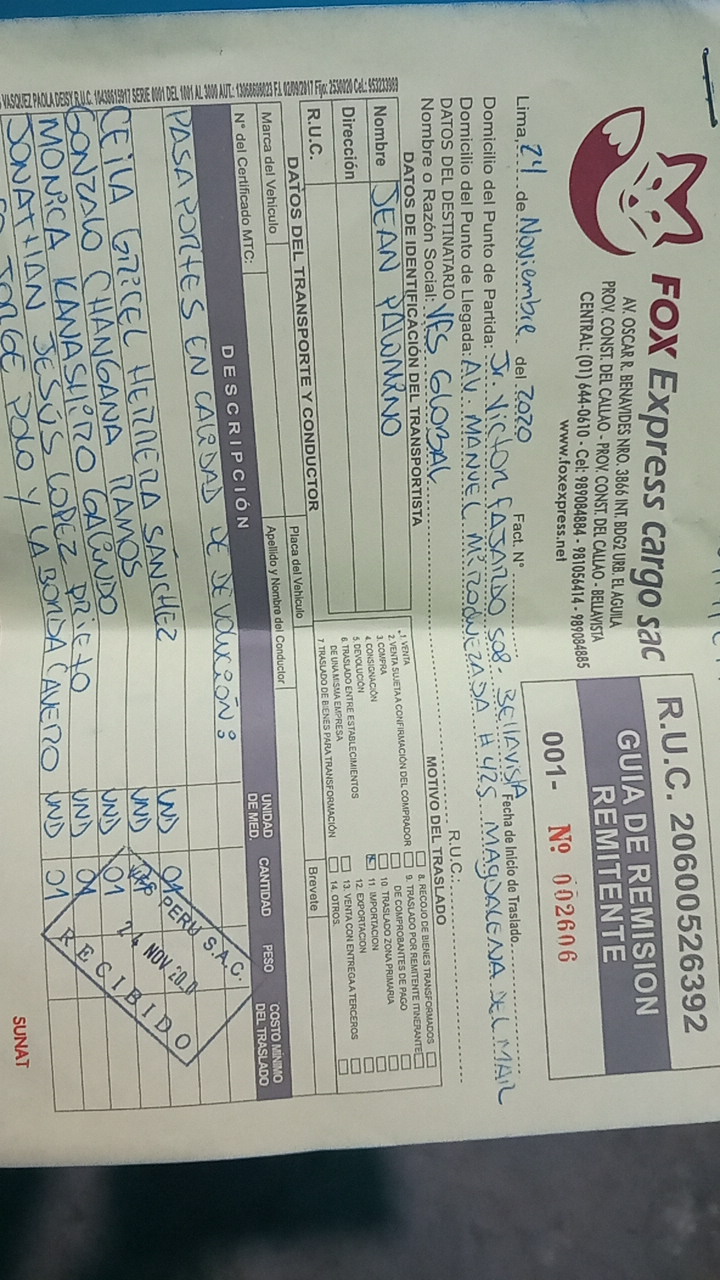 FOX Express cargo sac
AV. OSCAR R. BENAVIDES NRO. 3866 INT. BDG2 URB. EL AGUILA
PROV. CONST. DEL CALLAO - PROV. CONST. DEL CALLAO - BELLAVISTA
CENTRAL: (01) 644-0610 - Cel: 989084884 - 981056414 - 989084885
www.foxexpress.net
R.U.C. 20600526392
GUIA DE REMISION
REMITENTE
001- Nº 002606
Lima, 24 de Noviembre del 2020 Fact. N° Fecha de Inicio de Traslado
Domicilio del Punto de Partida: Jr. Victor Fajardo 508. BELLAVISTA
Domicilio del Punto de Llegada: AV. MANUEL # 425 MAGDALENA DEL MAR
DATOS DEL DESTINATARIO
Nombre o Razón Social: VFS GLOBAL R.U.C.:
DATOS DE IDENTIFICACIÓN DEL TRANSPORTISTA
Nombre JEAN PALOMINO
Dirección
R.U.C.
MOTIVO DEL TRASLADO
1 VENTA
2. VENTA SUJETA A CONFIRMACIÓN DEL COMPRADOR
3. COMPRA
4. CONSIGNACIÓN
5. DEVOLUCIÓN
6. TRASLADO ENTRE ESTABLECIMIENTOS
DE UNA MISMA EMPRESA
7. TRASLADO DE BIENES PARA TRANSFORMACIÓN
8. RECOJO DE BIENES TRANSFORMADOS
9. TRASLADO POR REMITENTE ITINERANTE
DE COMPROBANTES DE PAGO
10. TRASLADO ZONA PRIMARIA
11 IMPORTACION
12. EXPORTACION
13. VENTA CON ENTREGA A TERCEROS
14. OTROS.
DATOS DEL TRANSPORTE Y CONDUCTOR
Marca del Vehículo Placa del Vehículo Brevete
N° del Certificado MTC: Apellido y Nombre del Conductor
DESCRIPCIÓN UNIDAD DE MED. CANTIDAD PESO COSTO MÍNIMO DEL TRASLADO
PASAPORTES EN CALIDAD DE DEVOLUCIÓN:
CEILA GRICEL HERRERA SÁNCHEZ UND 01
GONZALO CHANGANA RAMOS UND
MONICA KANASHIRO GALINDO UND 01
JONATHAN JESÚS LOPEZ PRIETO UND 01
JORGE POLO Y LA BORDA CAVERO UND 01
PERU S.A.C.
24 NOV 20
RECIBIDO
SUNAT
VASQUEZ PAOLA DEISY R.U.C. 10438615917 SERIE 0001 DEL 1001 AL 3000 AUT.: 13868608023 F.I. 02/09/2017 Fijo: 2530020 Cel.: 953233989